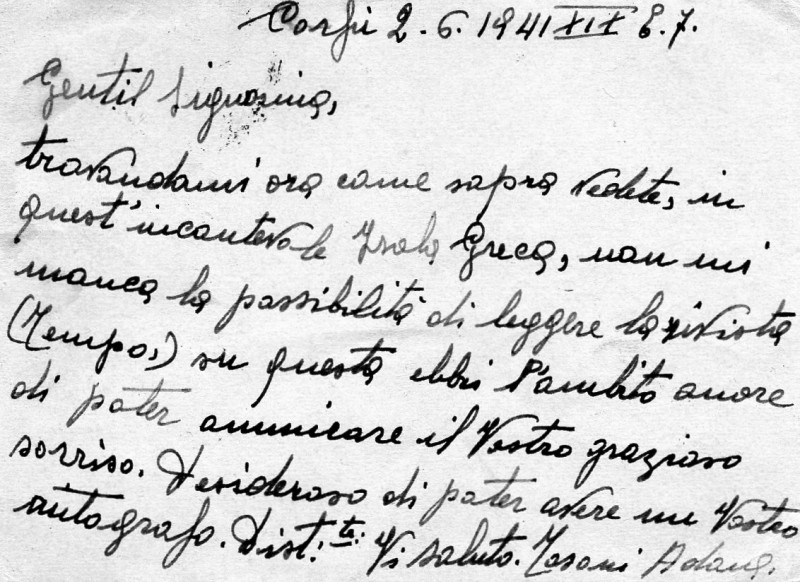 Corfù 2.6.1941 XIX E.F.
Gentil Signorina,
trovandomi ora come sopra vedete, in
quest'incantevole Isola Greca, non mi
manca la possibilità di leggere la rivista
(Tempo,) su questa ebbi l'ambito onore
di poter ammirare il Vostro grazioso
sorriso. Desideroso di poter avere un Vostro
autografo. Dist.te: Vi saluto.